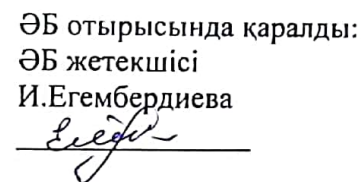 ӘБ отырысында қаралды:
ӘБ жетекшісі
И.Егембердиева